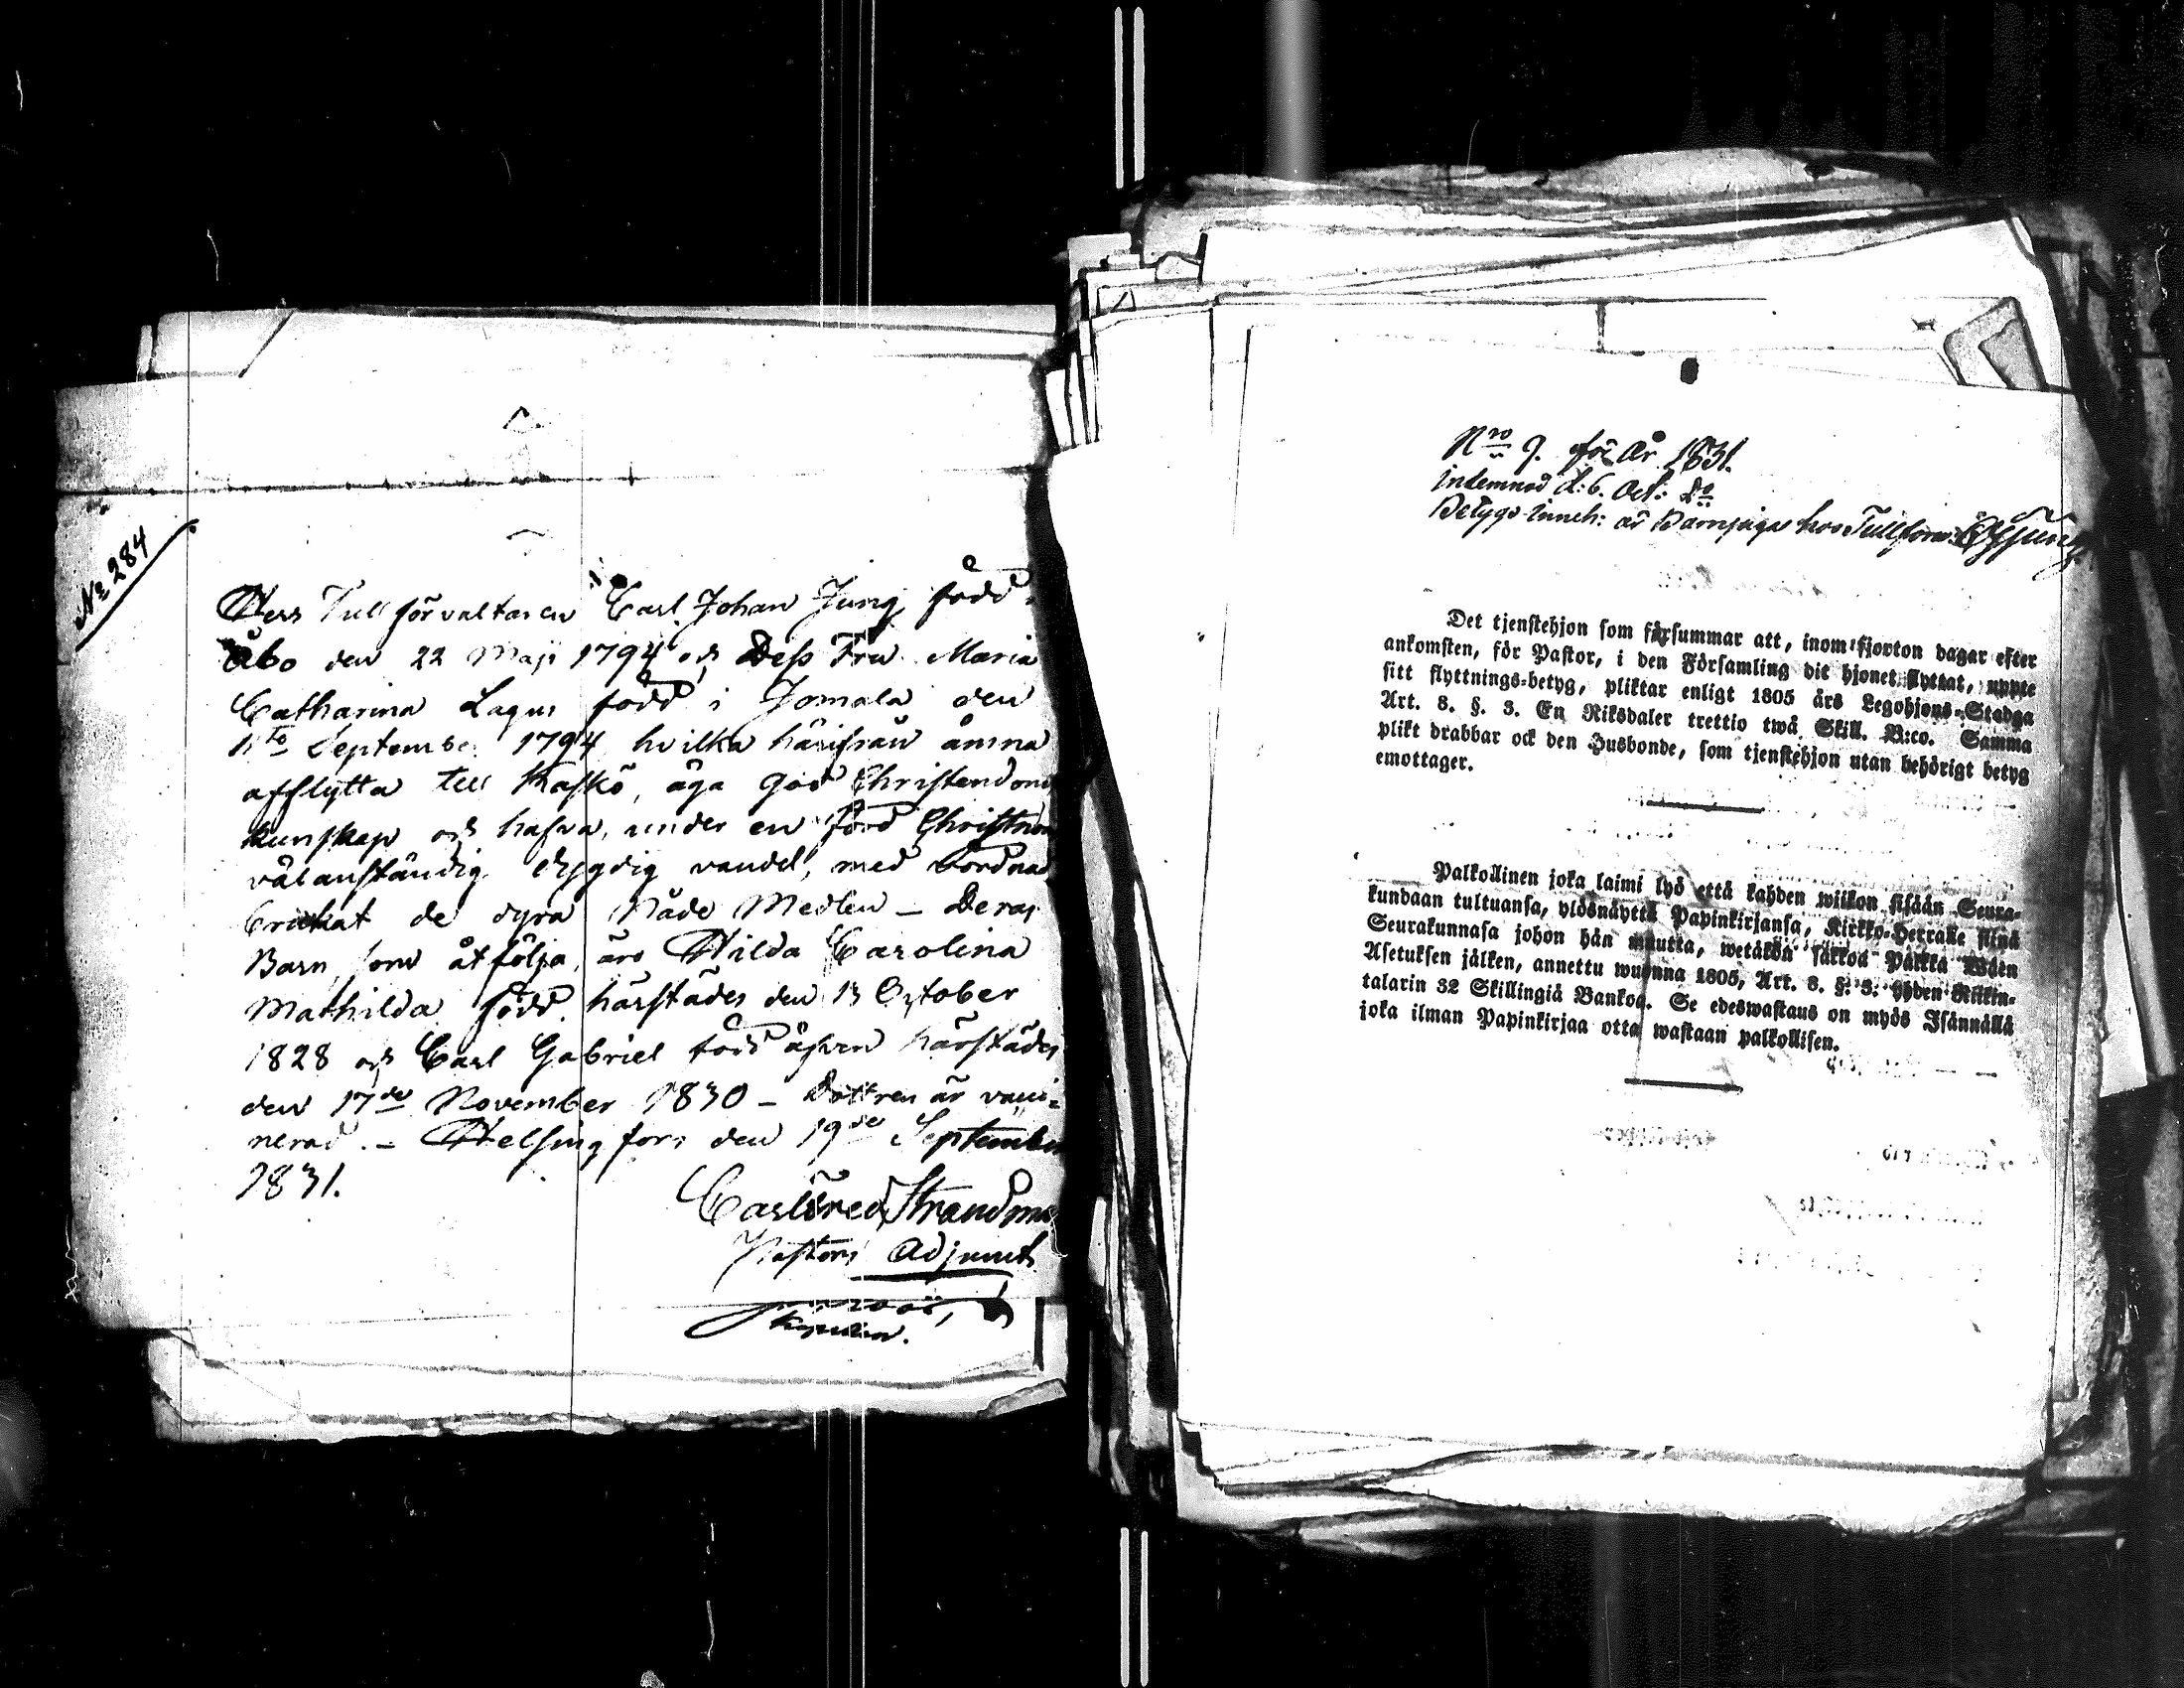 № 284
Herr Tullförvaltaren Carl Johan Jung född i
Åbo den 22 Maji 1794 och Dess Fru Maria
Catharina Lagus född i Jomala den
September 1794 hvilka härifrån ämna
afflytta till Kaskö, äga god Christendoms
kunskap och hafva, under en förd Christeen
välanständig dygdig vandel, med vördnad
brukat de dyra Nåde Medlen – Deras
Barn, som åtfölja, äro Hilda Carolina
Mathilda född härstädes den 13 October
1828 och Carl Gabriel född äfven härstädes
den 17de November 1830 – Dottren är vacci-
nerad. – Helsingfors den 19de September
1831.
Carl Fred Strandma
Pastors Adjunct
Nro 9. för År 1831.
inlemnad d: 6. Oct: Do
Betygs inneh: är Barnpiga hos Tullförv:
Det tjenstehjon som försummar att, inom fjorton dagar efter
ankomsten, för Pastor, i den Församling dit hjonet flyttat, uppte
sitt flyttnings-betyg, pliktar enligt 1805 års Legohjons-Stadga
Art. 8. §. 3. En Riksdaler trettio twå Skill. B:co. Samma
plikt drabbar ock den Husbonde, som tjenstehjon utan behörigt betyg
emottager.
Palkollinen joka laimi lyö että kahden wiikon sisään Seura-
kundaan tultuansa, ylösnäyttä Papinkirjansa, Kirkko-Herralle siinä
Seurakunnasa johon hän muutta, wetäkön sakkoa Palkka Wäen
Asetuksen jälken, annettu wuonna 1805, Art. 8. §. 3. yhden Riikin-
talarin 32 Skillingiä Bankoa. Se edeswastaus on myös Isännällä
joka ilman Papinkirjaa otta wastaan palkollisen.